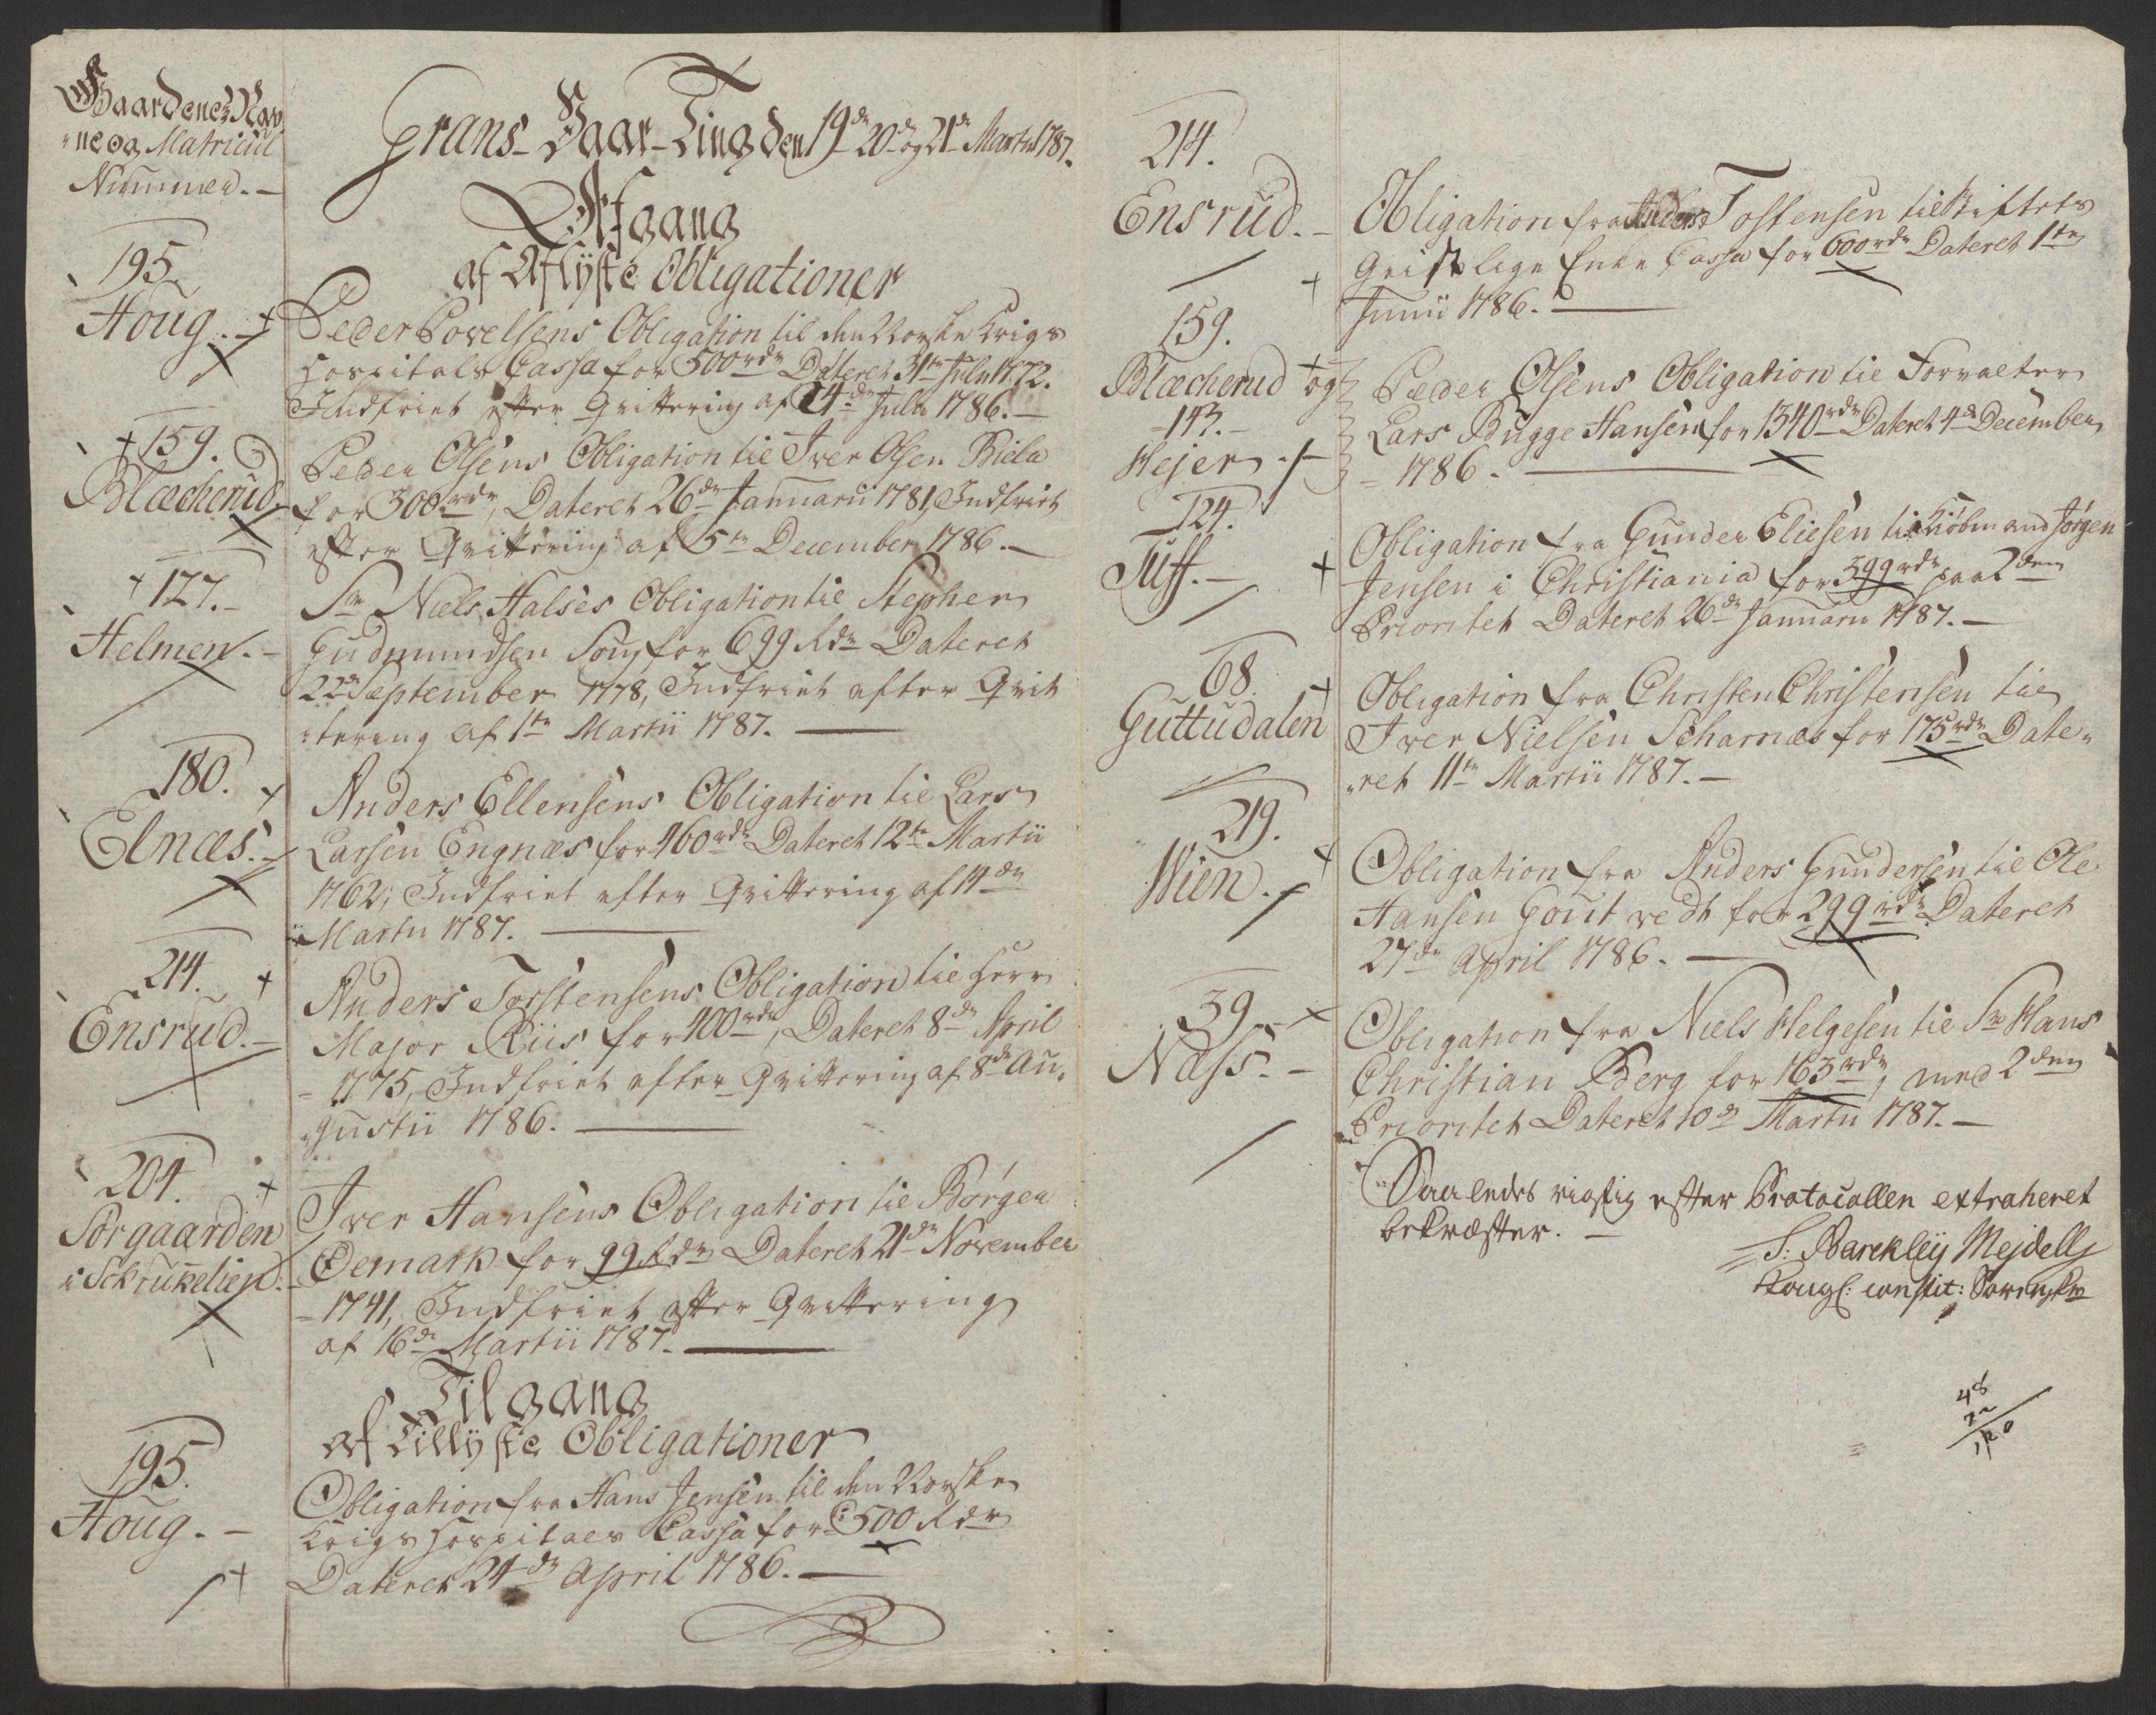 Gaardenes Nav
ne og Matricul
Nummer. -
Grans - Vaar - Ting den 19de 20de og 21de Martii 1787.
Afgang
af Aflyste Obligationer
195.
Houg. -
Peder Povelsens Obligation til den Norske Krigs
Hospitals Cassa for 500 rdr Dateret 31te Julii 1772.
Indfriet efter Qvittering af 24de Julii 1786. -
159.
Blæcherud.
Peder Olsens Obligation til Iver Olsen Biela
for 300 rdr, Dateret 26de Januarii 1781, Indfriet
efter Qvittering af 5te December 1786. -
127. -
Helmen. -
Sr Niels Halses Obligation til Stephen
Gudmundsen Song for 699 Rdr Dateret
22de September 1778, Indfriet efter Qvit
tering af 1te Martii 1787. -
180.
Elnæs. -
Anders Ellensens Obligation til Lars
Larsen Engnæs for 460 rdr Dateret 12te Martii
1762, Indfriet efter Qvittering af 14de
Martii 1787. -
214.
Ensrud. -
Anders Torstensens Obligation til Herr
Major Riis for 400 rdr, Dateret 8de April
1775, Indfriet efter Qvittering af 8de Au-
gustii 1786. -
204.
Sørgaarden
i Schrukelien. -
Iver Hansens Obligation til Børger
Oemark for 99 Rdr Dateret 21de November
1741, Indfriet efter Qvittering
af 16de Martii 1787. -
Tilgang
af Tillyste Obligationer
195.
Houg. -
Obligation fra Hans Jensen til den Norske
Krigs Hospitals Cassa for 500 Rdr
Dateret 24de April 1786. -
214.
Ensrud. -
Obligation fra Anders Tostensen til Stiftets
Geistlige Enke Cassa for 600 rdr Dateret 1te
Junii 1786. -
159.
Blæcherud og
143. -
Wejer. -
Peder Olsens Obligation til Forvalter
Lars Bugge Hansen for 1340 rdr Dateret 4de December
1786. -
124.
Tuff. -
Obligation fra Gunder Eliesen til Kiøbmand Jørgen
Jensen i Christiania for 399 rdr paa 2den
Prioritet Dateret 26de Januarii 1787. -
68.
Guttudalen
Obligation fra Christen Christensen til
Iver Nielsen Scharnæs for 175 rdr Date-
ret 11te Martii 1787. -
219.
Wien. -
Obligation fra Anders Gundersen til Ole
Hansen Gouitvedt for 299 rdr Dateret
27de April 1786. -
39. -
Næss. -
Obligation fra Niels Helgesen til Sr Hans
Christian Berg for 163 rdr, med 2den
Prioritet Dateret 10de Martii 1787. -
Saaledes rigtig efter Protocollen extraheret
bekræfter. -
S: Barckleÿ Mejdell
Kongl: constit: Sorenskr
48
72
120